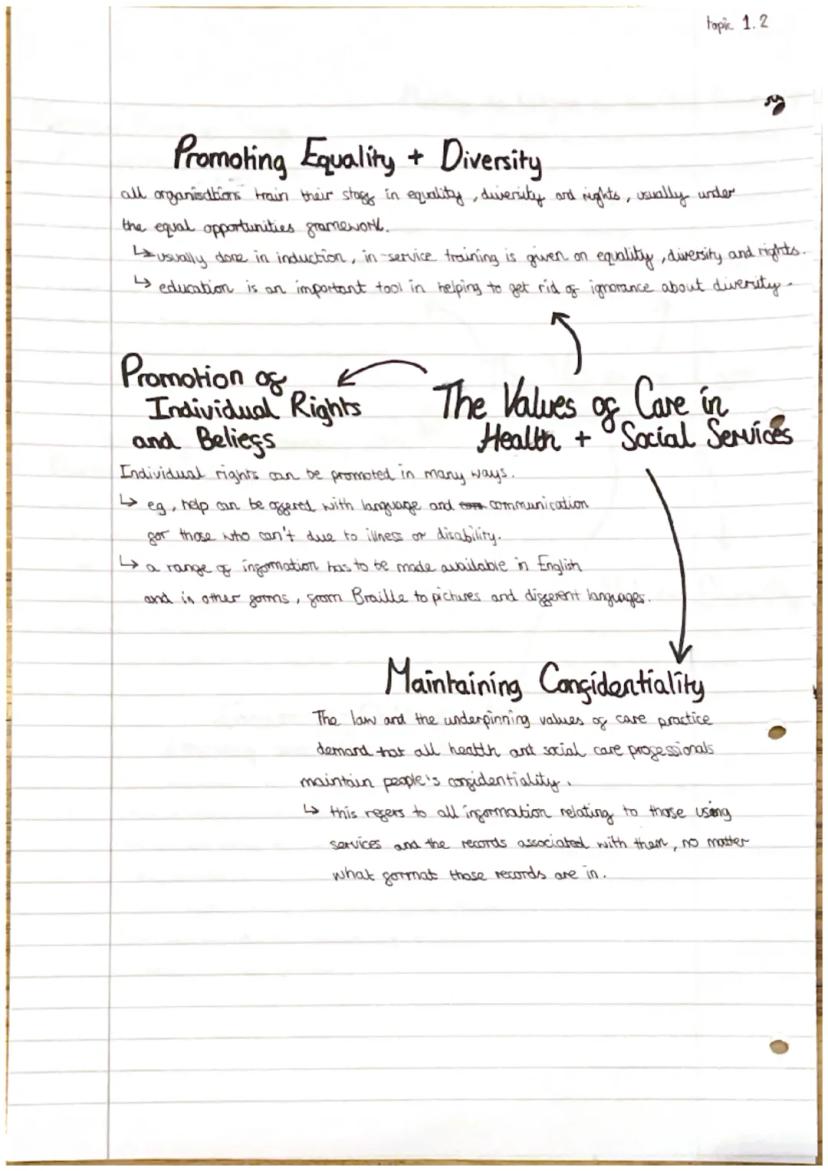 topic 1.2
Promoting Equality + Diversity
all organisations train their staff in equality, diversity and rights, usually under
the equal opportunities framework.
↳ usually done in induction, in-service training is given on equality, diversity and rights.
↳ education is an important tool in helping to get rid of ignorance about diversity.
The Values of Care in
Health + Social Services
Promotion of
Individual Rights
and Beliefs
Individual rights can be promoted in many ways.
↳ eg, help can be offered with language and communication
for those who can't due to illness or disability.
↳ a range of information has to be made available in English
and in other forms, from Braille to pictures and different languages.
Maintaining Confidentiality
The law and the underpinning values of care practice
demand that all health and social care professionals
maintain people's confidentiality.
↳ this refers to all information relating to those using
services and the records associated with them, no matter
what format those records are in.